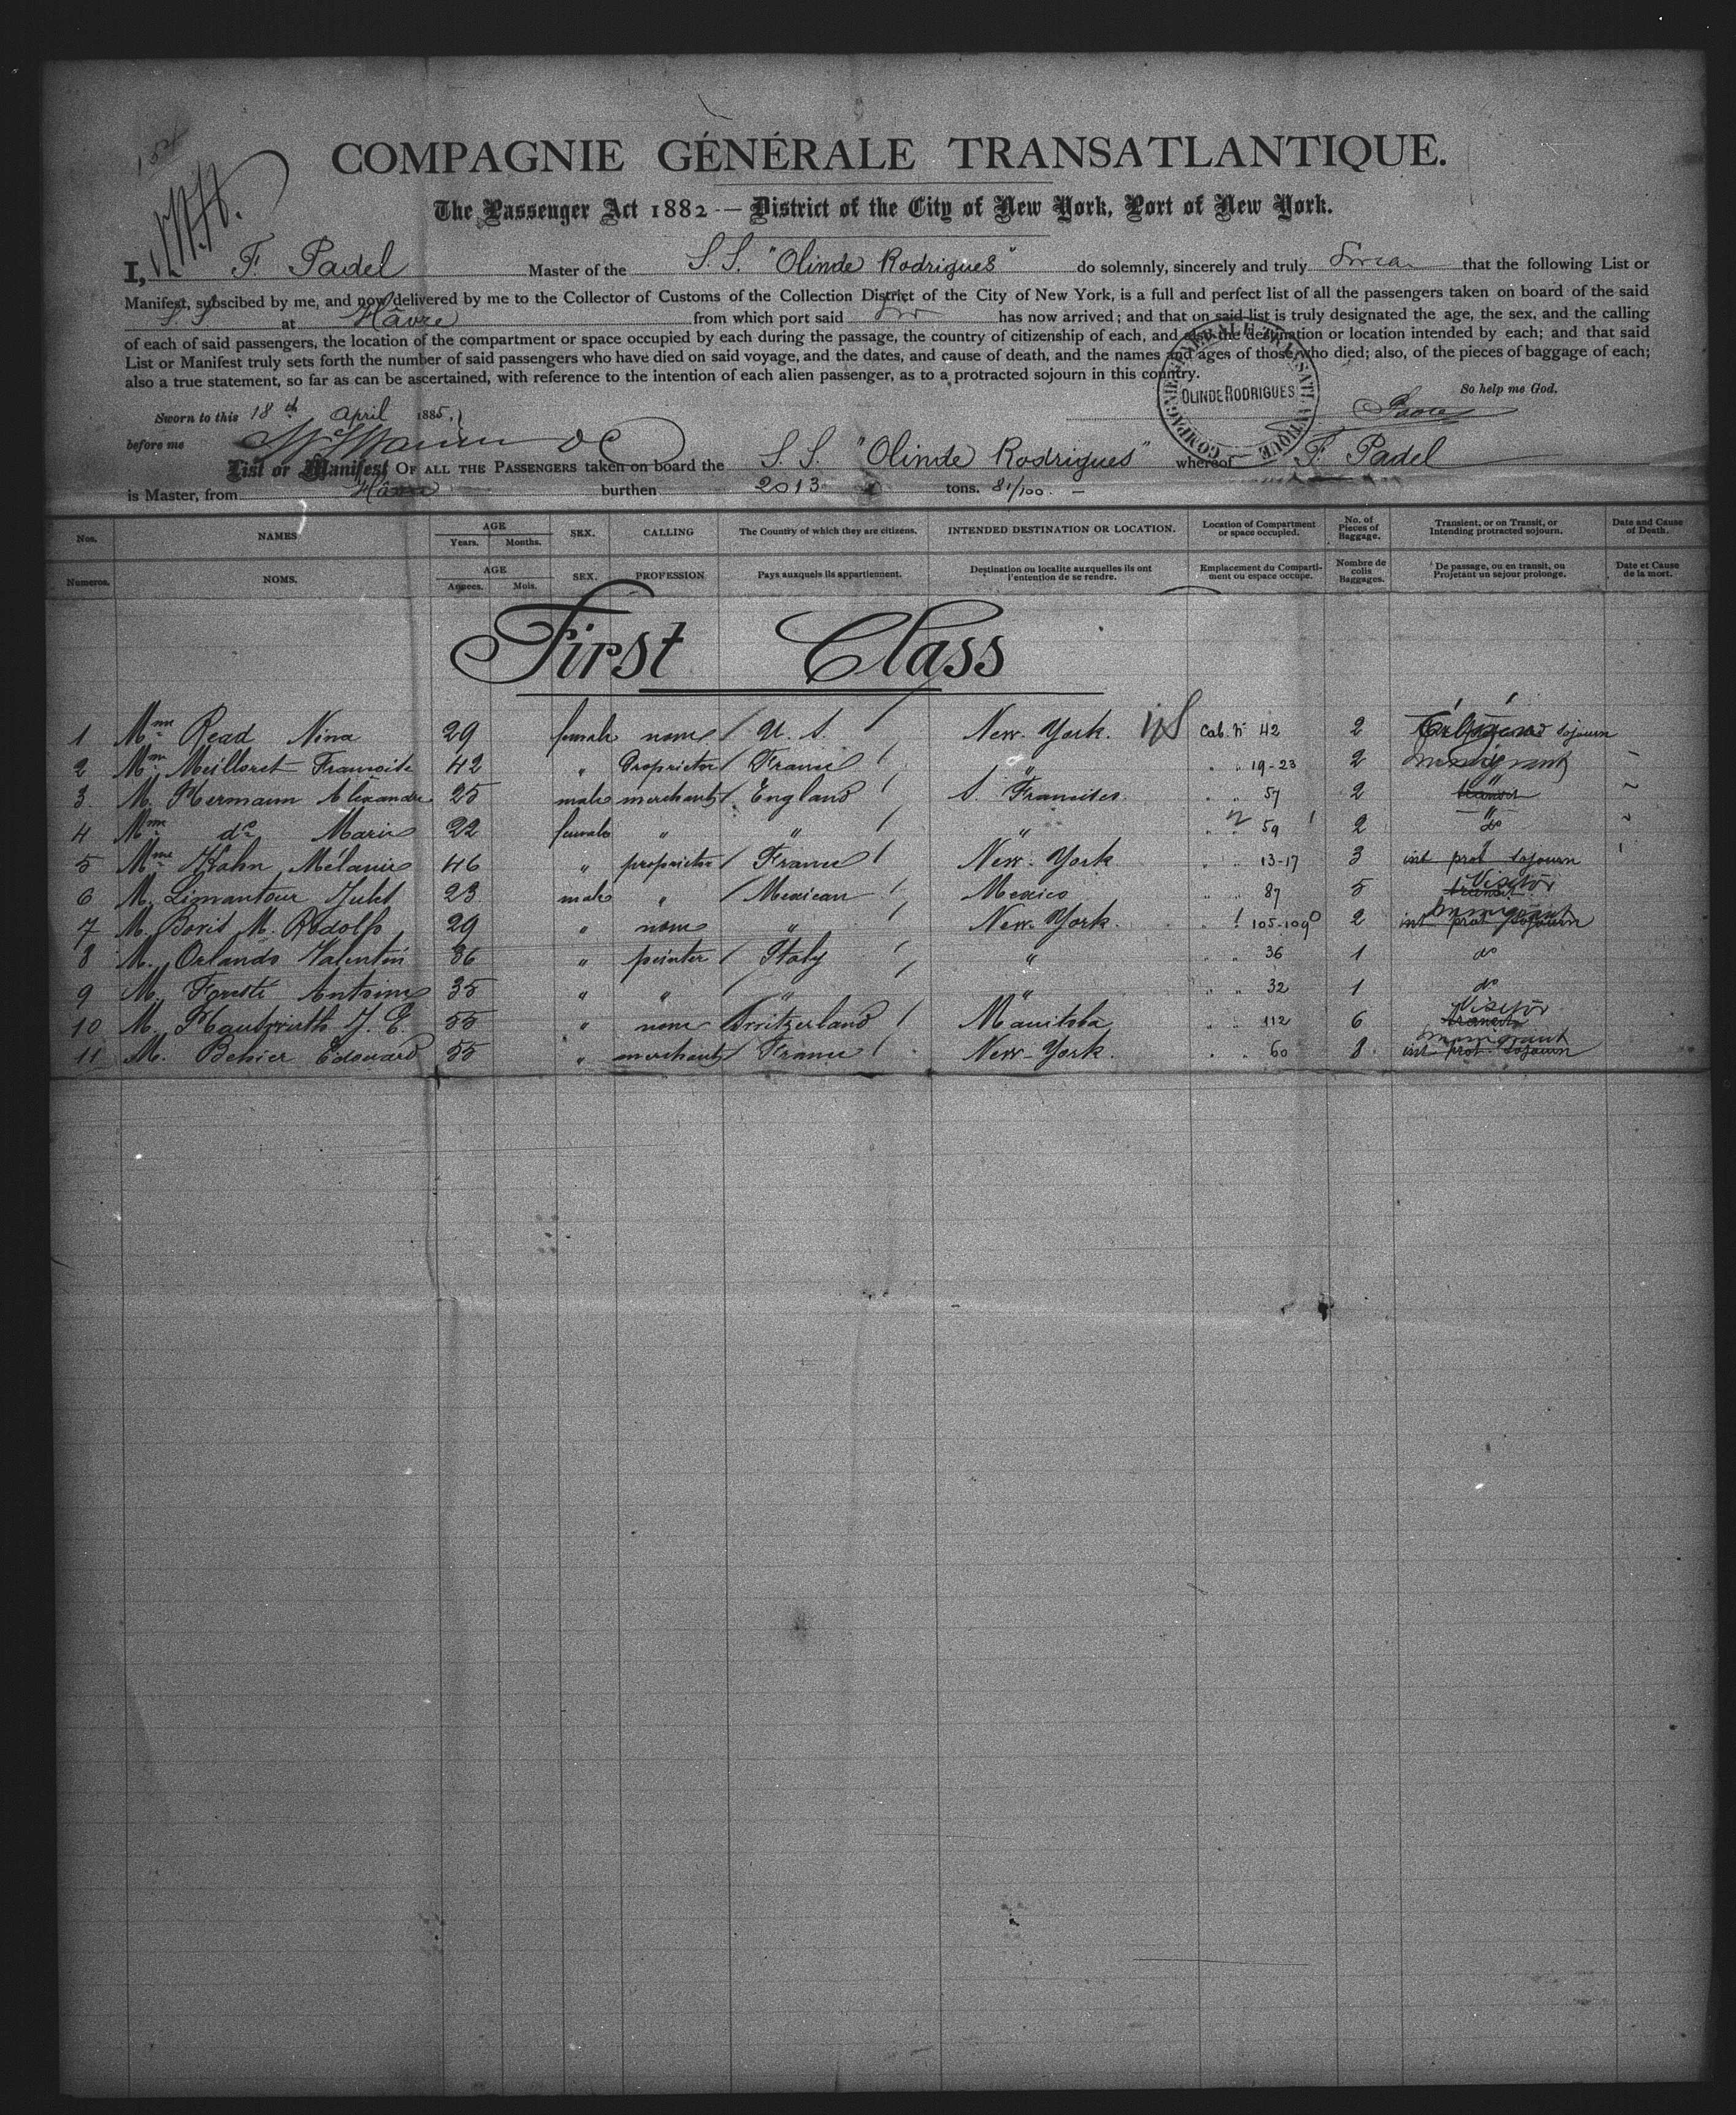 COMPAGNIE GÉNÉRALE TRANSATLANTIQUE.
The Passenger Act 1882 — District of the City of New York, Port of New York.
I, F. Padel Master of the S.S. "Olinde Rodrigues" do solemnly, sincerely and truly that the following List or
Manifest, subscibed by me, and now delivered by me to the Collector of Customs of the Collection District of the City of New York, is a full and perfect list of all the passengers taken on board of the said
S. S. at Hâvre from which port said has now arrived; and that on said list is truly designated the age, the sex, and the calling
of each of said passengers, the location of the compartment or space occupied by each during the passage, the country of citizenship of each, and also the destination or location intended by each; and that said
List or Manifest truly sets forth the number of said passengers who have died on said voyage, and the dates, and cause of death, and the names and ages of those who died; also, of the pieces of baggage of each;
also a true statement, so far as can be ascertained, with reference to the intention of each alien passenger, as to a protracted sojourn in this country.
So help me God.
OLINDE RODRIGUES
Sworn to this 18th April 1885,
before me
List or Manifest OF ALL THE PASSENGERS taken on board the S. S. "Olinde Rodrigues" whereof F. Padel
is Master, from Hâvre burthen 2013 tons. 81/100. —
Nos. NAMES AGE Years. Months. SEX. CALLING The Country of which they are citizens. INTENDED DESTINATION OR LOCATION. Location of Compartment or space occupied. No. of Pieces of Baggage. Transient, or on Transit, or Intending protracted sojourn. Date and Cause of Death.
Numeros. NOMS. AGE Annees. Mois. SEX. PROFESSION Pays auxquels ils appartiennent. Destination ou localite auxquelles ils ont l'entention de se rendre. Emplacement du Comparti-ment ou espace occupe. Nombre de colis Baggages. De passage, ou en transit, ou Projetant un sejour prolonge. Date et Cause de la mort.
First Class
1 Mme Read Nina 29 female none U. S. New-York. Cab. No 42 2 sojourn
2 Mme Meilloret Francoise 42 " Proprietor France " " " 19-23 2 immigrant
3 M. Hermann Alexandre 25 male merchant England S. Francisco " " 57 2 "
4 Mme do Marie 22 female " " " " " 59 2 "
5 Mme Kahn Mélanie 46 " proprietor France New-York " " 13-17 3 int prot sojourn
6 M. Limantour Julet 23 male " Mexican Mexico " " 87 5 transit Visitor
7 M. Boris M. Rodolfo 29 " none " New-York. " " 105-109 2 int prot sojourn Immigrant
8 M. Orlando Valentin 36 " peinter Italy " " " 36 1 do
9 M. Foresti Antoine 35 " " " " " " 32 1 do
10 M. Hautwirth J. E. 55 " none Switzerland Manitoba " " 112 6 transit Visitor
11 M. Behier Edouard 55 " merchant France New-York. " " 60 8 int prot sojourn Immigrant